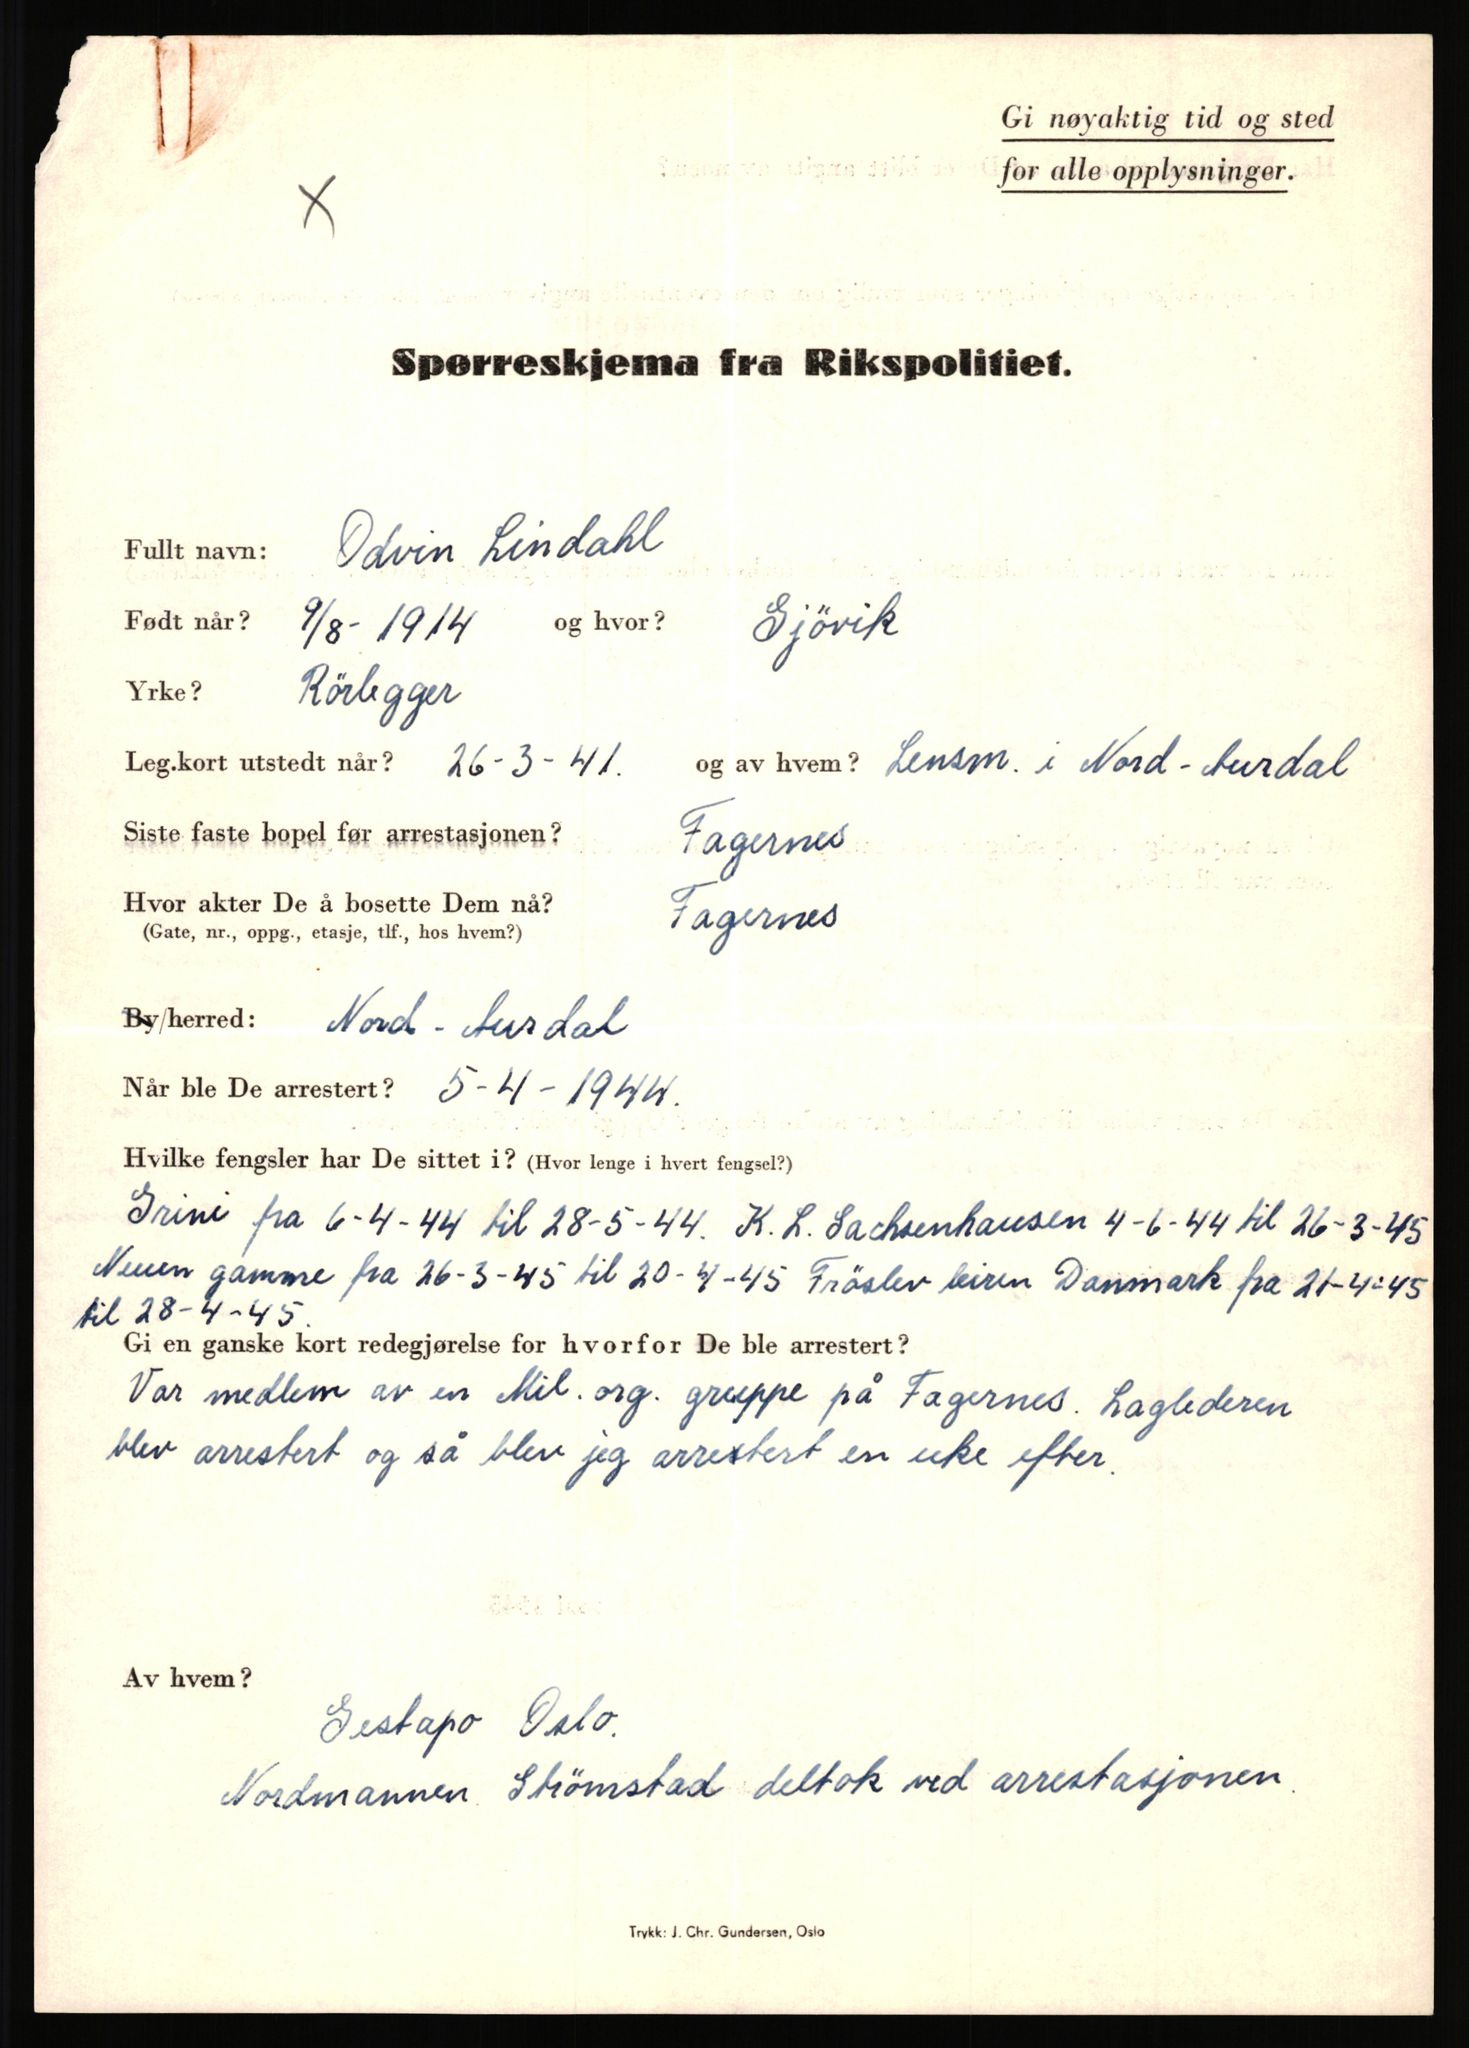 Gi nøyaktig tid og sted
for alle opplysninger.
X
Spørreskjema fra Rikspolitiet.
Fullt navn: Odvin Lindahl
Født når? 9/8-1914 og hvor? Gjövik
Yrke? Rörlegger
Leg.kort utstedt når? 26-3-41. og av hvem? Lensm. i Nord-Aurdal
Siste faste bopel før arrestasjonen? Fagernes
Hvor akter De å bosette Dem nå? Fagernes
(Gate, nr., oppg., etasje, tlf., hos hvem?)
By/herred: Nord-Aurdal
Når ble De arrestert? 5-4-1944.
Hvilke fengsler har De sittet i? (Hvor lenge i hvert fengsel?)
Grini fra 6-4-44 til 28-5-44. K. L. Sachsenhausen 4-6-44 til 26-3-45
Neuen gamme fra 26-3-45 til 20-4-45 Fröslev leiren Danmark fra 21-4-45
til 28-4-45.
Gi en ganske kort redegjørelse for hvorfor De ble arrestert?
Var medlem av en Mil. org. gruppe på Fagernes. Laglederen
blev arrestert og så blev jeg arrestert en uke efter.
Av hvem?
Gestapo Oslo.
Nordmannen Strömstad deltok ved arrestasjonen.
Trykk: J. Chr. Gundersen, Oslo